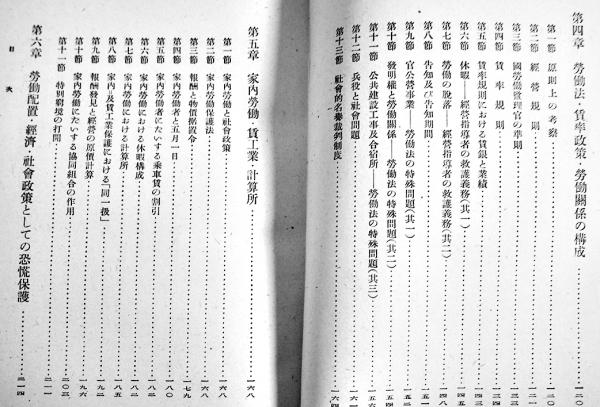 第四章　勞働法・賃率政策・勞働關係の構成……一二〇
第一節　原則上の考察……一二〇
第二節　經營規則
第三節　國勞働管理官の準則
第四節　賃率規則
第五節　賃率規則における賃銀と業績
第六節　休暇——經營指導者の救護義務(其一)
第七節　勞働の脫落——經營指導者の救護義務(其二)
第八節　告知及び告知期間
第九節　官公營事業——勞働法の特殊問題(其一)
第十節　發明權と勞働關係——勞働法の特殊問題(其二)
第十一節　公共建設工事及合宿所——勞働法の特殊問題(其三)
第十二節　兵役と社會問題
第十三節　社會的名譽裁判制度
第五章　家內勞働・賃工業・計算所……一六八
第一節　家內勞働と社會政策……一六八
第二節　家內勞働保護法
第三節　報酬と物價停止令
第四節　家內勞働者と五月一日……一八〇
第五節　家內勞働者にたいする乘車賃の割引
第六節　家內勞働における休暇構成
第七節　家內勞働における計算所
第八節　家內及賃工業保護における「同一扱」
第九節　報酬發見と經營の原價計算
第十節　家內勞働にたいする協同組合の作用
第十一節　特別窮境の打開
第六章　勞働配置・經濟・社會政策としての恐慌保護……二一四
目次